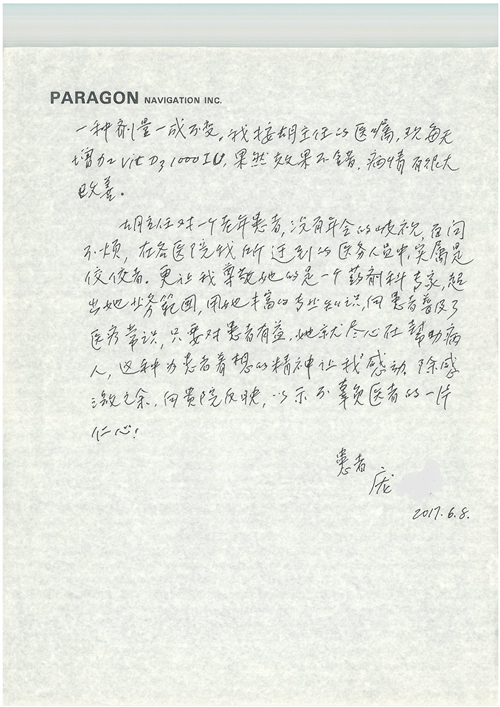 PARAGON NAVIGATION INC.
一种剂量一成不变。我接胡主任的医嘱，现每天
增加2 Vit D3 1000IU，果然效果不错，病情有很大
改善。
胡主任对一个老年患者，没有年令的歧视，百问
不烦，在各医院我所遇到的医务人员中，实属是
佼佼者。更让我尊敬她的是一个药剂科专家，超
出她业务范围，用她丰富的专业知识，向患者普及了
医疗常识，只要对患者有益，她就尽心在帮助病
人，这种为患者着想的精神让我感动，除感
激之余，向贵院反映，以示不辜负医者的一片
仁心！
患者
庞
2017.6.8.